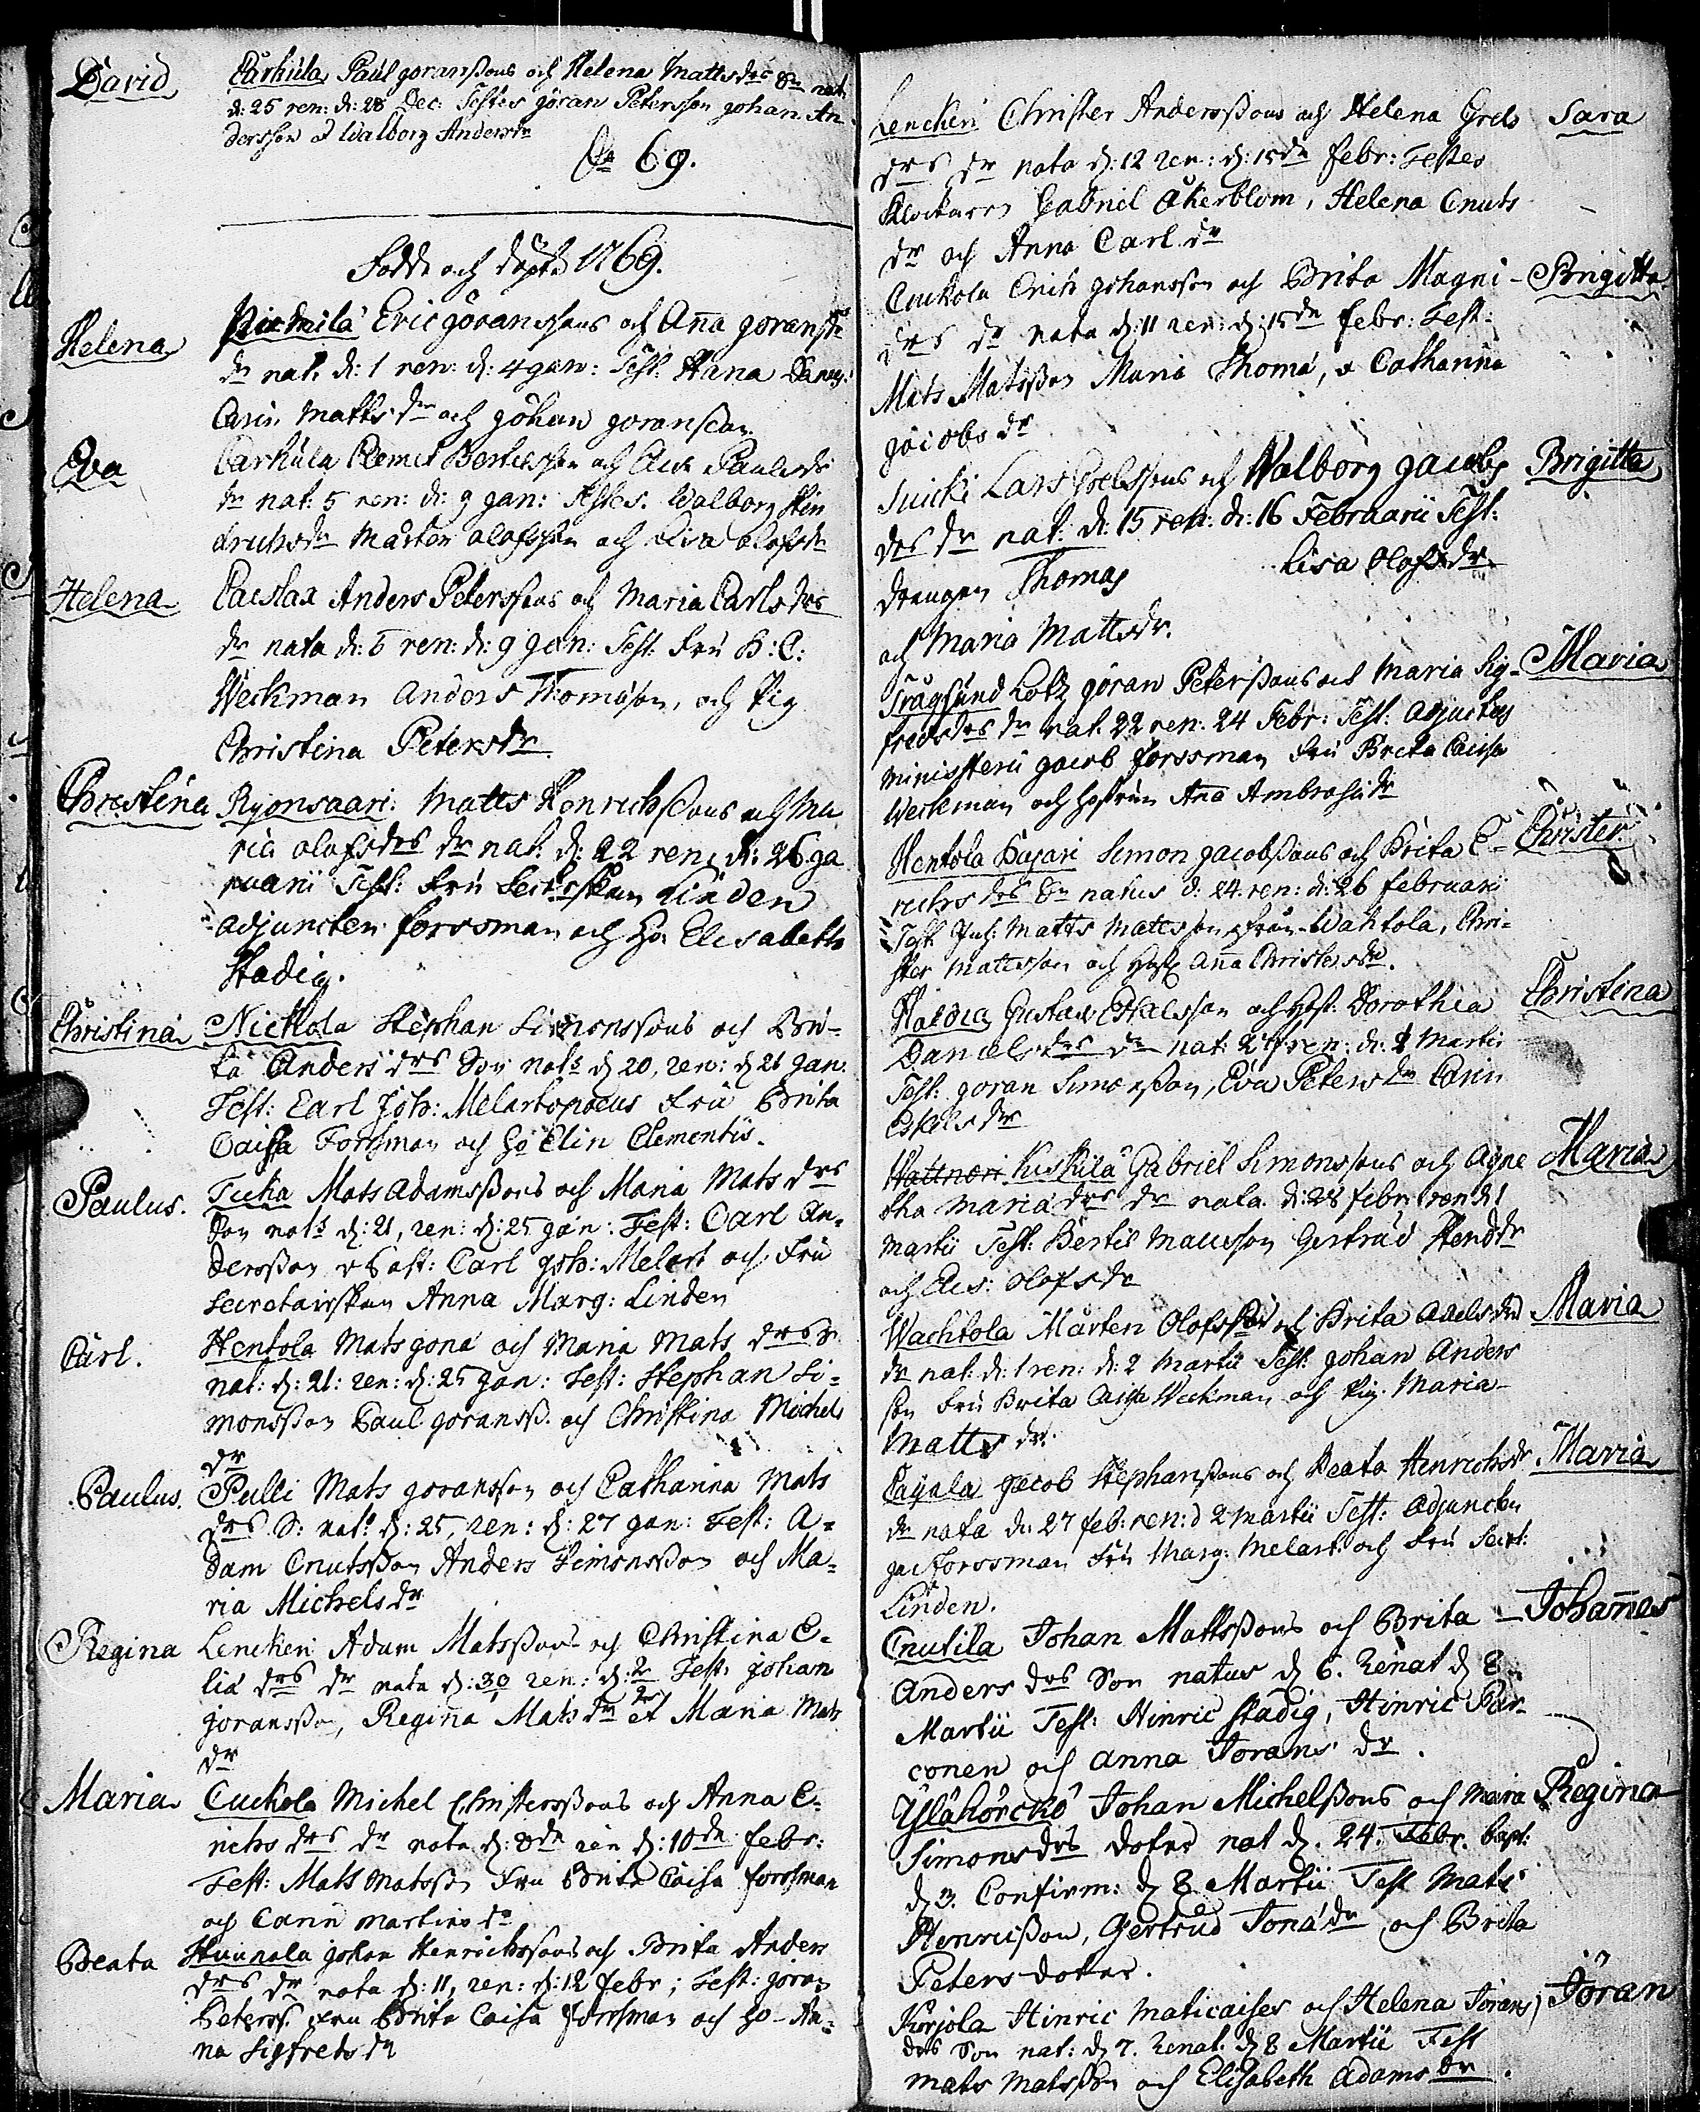 David
Carkula Paul göranßons och Helena Mattsdrs Sn nat.
d: 25 ren: d: 28 Dec: Testes göran Petersson johan An-
dersson & Walborg Andersdr
Sa 69.
Födde och döpte 1769.
Helena
Eric göranssons och Aña göransdr
dr nat. d: 1 ren: d: 4 gan: Test: Hana
Carin Mattsdr och göhan göransson.
Eva
Carkula Clemet Bertelsson och Paulsdr
dr nat: 5 ren: d: 9 gan: Testes. Walborg Hin
drichsdr Mårten olofsson och olofsdr
Helena
Pacslax Anders Peterssons och Maria Carlsdrs
dr nata d: 5 ren: d: 9 gan: Test: Fru B: C:
Weckman Anders Thomasson, och Pig
Christina Petersdr
Christina
Ryonsaari: Matts Henrichssons och Ma
ria olofsdrs dr nat: d: 22 ren: d: 26 ga
nuarii Test: Fru Linden
adjuncten forssman och Ho Elisabeth
Stadig.
Christina
Nickola Stephan Simonssons och Bri-
ta Anders drs Son nats d 20, ren: d 26 gan.
Test: Carl Joh: Melartopoeus Fru Brita
Caisa Forssman och Ho Elin Clementis.
Paulus.
Tucka Mats Adamsßons och Maria Mats drs
Son nats d: 21, ren: d: 25 gan: Test: Carl An-
dersson Carl Joh: Melart och Fru
Secretairskan Anna Marg: Linden
Carl.
Hentola Mats gona och Maria Mats drs S:
nat: d: 21: ren: d: 25 gan: Test: Stephan Si-
monsson Paul goransß. och Christina Michels
dr
Paulus.
Pulli Mats goransson och Catharina Mats
drs S: nats d: 25, ren: d: 27 gan: Test: A-
dam Cnutsson Anders Simonsson och Ma-
ria Michelsdr
Regina
Lencken Adam Matsßons och Christina E-
lia drs dr nata d: 30 ren: d: 2 Test: johan
goransson, Regina Mats dr et Maria Mats
dr
Maria
Cuckola Michel Christersßons och Anna E-
richs drs dr nata d: 8dn ren d: 10dn febr:
Test: Mats Matsson Fru Brita Caisa forssman
och Carin Martins dr
Beata
Huunala johan Henrichssons och Brita Anders
drs dr nata d: 11, ren: d: 12 febr; Test: göran
Peterss. Fru Brita Caisa Forssman och Ho An-
na Sigfrets dr
Lencken Christer Anderssons och Helena Grels Sara
drs dr nata d: 12 ren: d: 15dn febr: Testes
Klockaren Gabriel Åkerblom, Helena Cnuts
dr och Anna Carl dr
Cuckola Erich johansson och Brita Magni- Brigitta
drs dr nata d: 11 ren: d: 15dn febr: Test:
Mats Matsson Maria Thomæ, & Catharina
jacobs dr
Suicki Lars Poelssons och Walborg jacobs Brigitta
drs dr nat: d: 15 ren: d: 16 Februarii Test:
drengen Thomas Lisa Olofsdr
och Maria Mattsdr.
Trågsund Lotz göran Petersßons och Maria Sig- Maria
fredsdrs dr nat. 22 ren: 24 Febr: Test: Adjunctus
Ministerii jacob forssman Fru Brita Caisa
Weckman och hustrun Aña Ambrosiidr
Hentola Bajari Simon jacobßons och Brita E- Christer.
richs drs Sn natus d. 24. ren: d: 26 februarii
Test Matts Matsson från Wahtola, Chri-
ster Mattsson och Hust Aña Christersdr.
Gustav Eskelsson och Hust: Dorothea Christina
Daniels drs dr nat: 27 ren: d: 2 Martii
Test: goran Simonsson, Eva Peters dr Carin
Eskelsdr
Kuskila Gabriel Simonssons och Agne Maria
tha Maria drs dr nata. d: 28 febr: ren d: 1
Martii Test: Bertil Mausson Gertrud Hendr
och Elis: Olofsdr
Wachtola Mårten Olofsson och Brita Axelsdrs Maria
dr nat: d: 1 ren: d: 2 Martii Test: johan Anders
son Fru Brita Caisa Weckman och Pig. Maria
Matts dr.
Cajala Jacob Stephansßons och Beata Henrichsdr Maria
dr nata d: 27 feb: ren: d 2 Martii Test: Adjuncten
jac Forssman Fru Marg: Melart och Fru Secret:
Linden.
Cnutila Johan Mattsßons och Brita Johañes
Anders drs Son natus d 6. Renat d 8
Martii Test: Hinric Stadig, Hinric Par-
conen och Anna Jorans dr.
Yläkörckö Johan Michelßons och Maria Regina
Simonsdrs doter nat d. 24. Febr. bapt:
d 3. Confirm: d 8 Martii Test Mats
Henricßon, Gertrud Jona dr och Brita
Peters doter.
Korjola Hinric Maticaises och Helena Jorans, Jöran
drs Son nat: d 7. Renat. d 8 Martii Test
Mats Matsson och Elisabeth Adams dr.